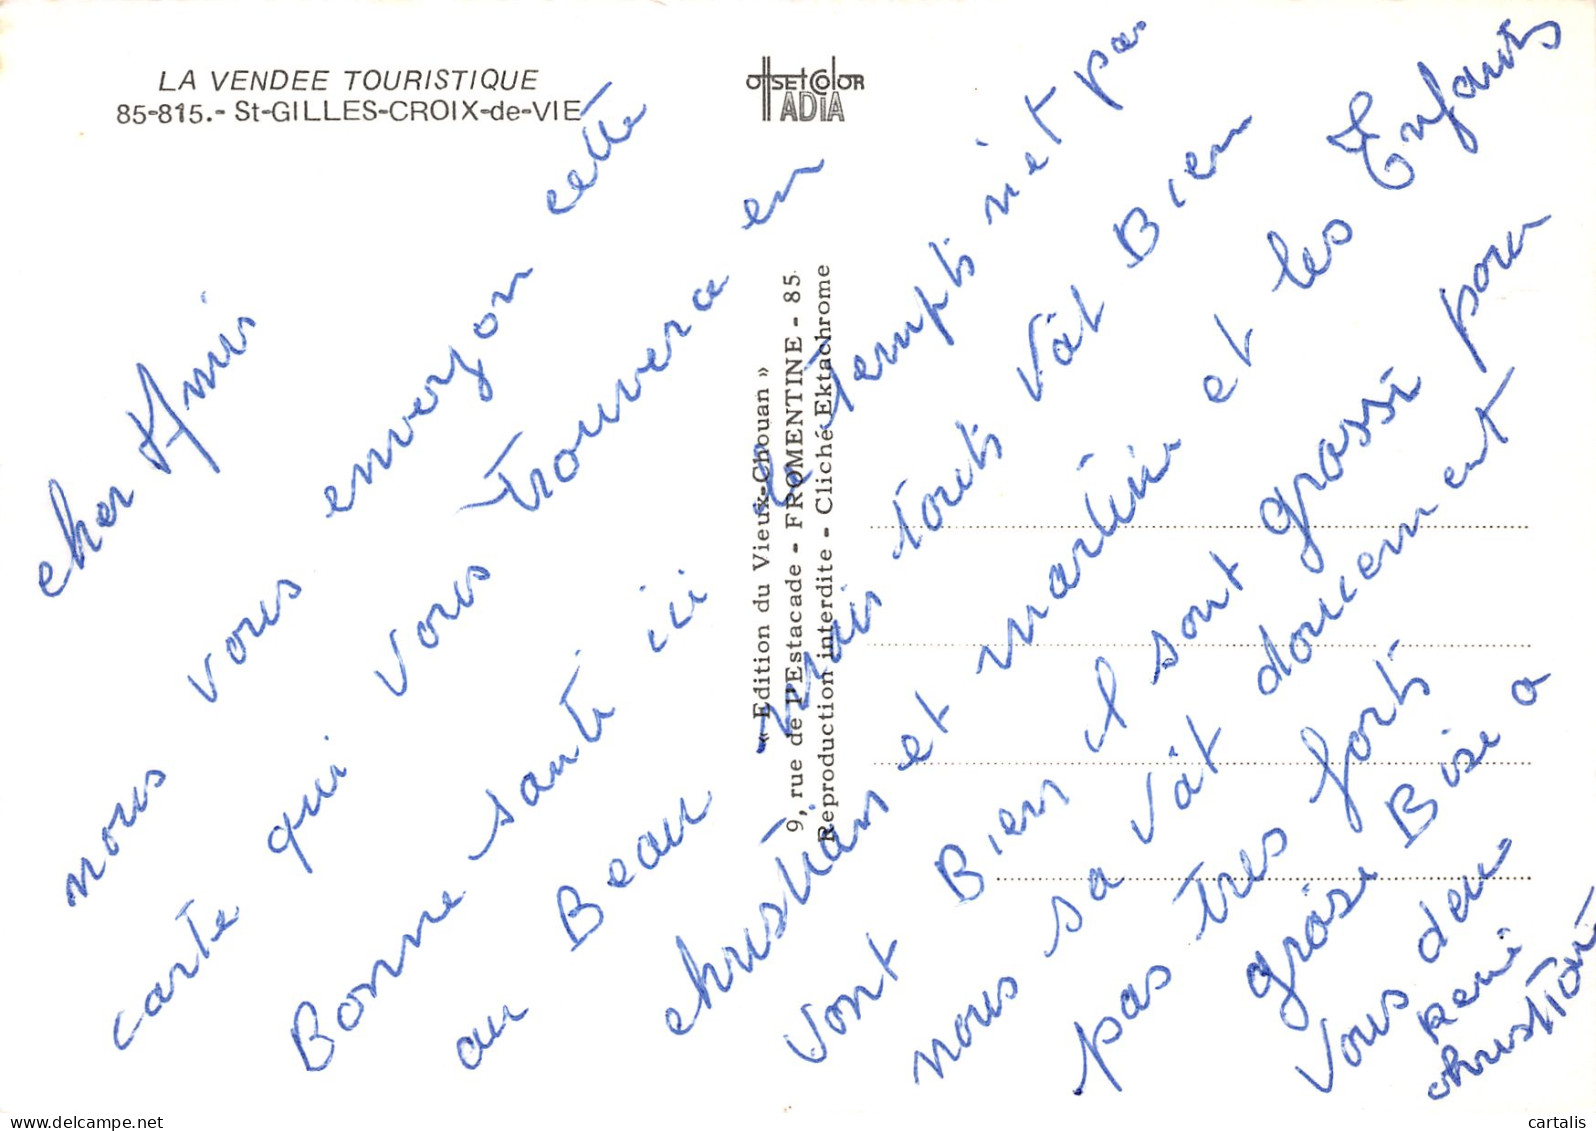 LA VENDEE TOURISTIQUE
85-815.- St-GILLES-CROIX-de-VIE
OffSEt COlOR
IADIA
« Edition du Vieux-Chouan »
9, rue de l'Estacade - FROMENTINE - 85
Reproduction interdite - Cliché Ektachrome
cher Amis
nous vous envoyon cette
carte qui vous trouvera en
Bonne santé ici le tempts n'et pa
au Beau mais touts vât Bien
christian et martine et les Enfants
vont Bien il sont grossi pour
nous sa vât doucement
pas tres forts
grôse Bise a
vous deu
René
christian
cartalis